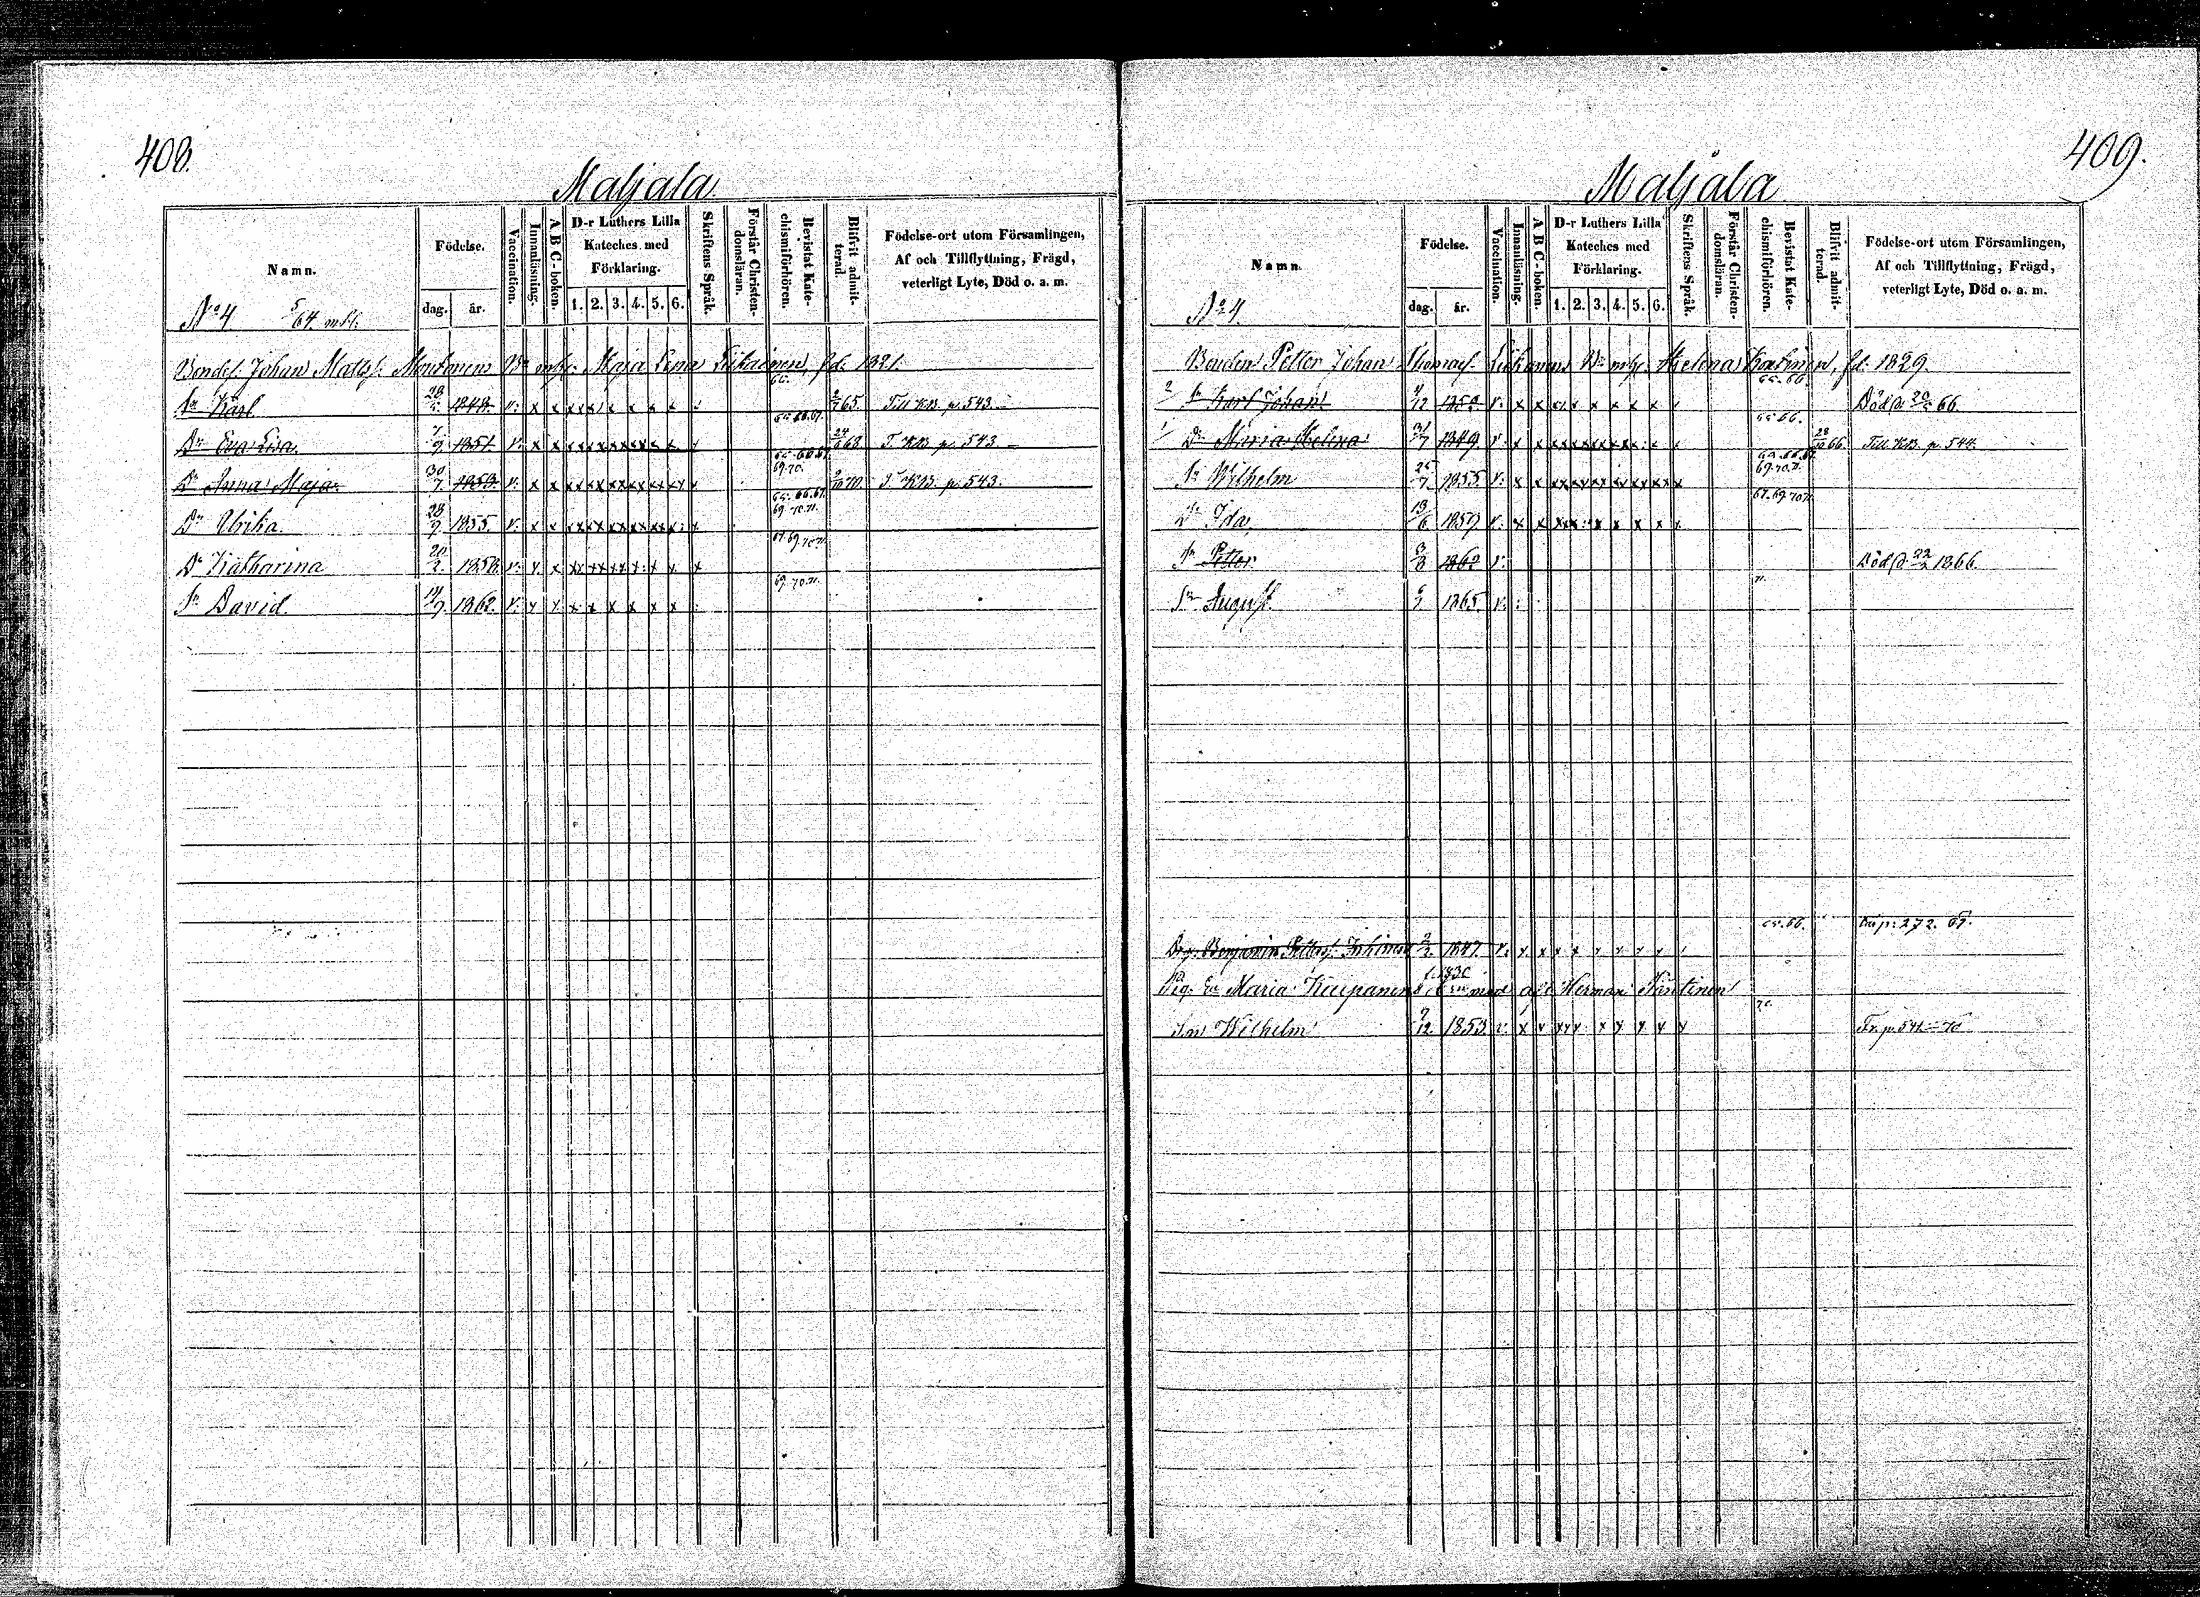 408.
Maljala
Namn.
Födelse.
dag.
år.
Vaccination.
Innanläsning.
A B C-boken.
D-r Luthers Lilla
Kateches med
Förklaring.
1. 2. 3. 4. 5. 6.
Skriftens Språk.
Förstår Christen-
domsläran.
Bevistat Kate-
chismiförhören.
Blifvit admit-
terad.
Födelse-ort utom Församlingen,
Af och Tillflyttning, Frägd,
veterligt Lyte, Död o. a. m.
No 4 5/64 mtl.
Bondes. Johan Matts. Dr m/hu Maja Lena fd. 1821.
66.
Sn Karl 28/5 1848. v. x x xx x x x x 65. Till KB. p. 543.
65.66.67.
Dr Eva Lisa 7/9 1851. v. x x xx xx xx xx x x 24/6 68. T. KB. p. 543
65.66.67.
69.70.
Dr Anna Maja 30/7 1853. v. x x xx xx xx xx xx x 70. T. KB. p. 543.
65.66.67.
69.70.71.
Dr Ulrika 28/9 1855. v. x x xx xx xx xx xx x
67.69.70.71.
Dr Katharina 20/2 1858. v. x x xx xx xx x x x
69.70.71.
Sn David 14/9 1862. v. x x x x x x x x
409.
Maljala
Namn.
Födelse.
dag.
år.
Vaccination.
Innanläsning.
A B C-boken.
D-r Luthers Lilla
Kateches med
Förklaring.
1. 2. 3. 4. 5. 6.
Skriftens Språk.
Förstår Christen-
domsläran.
Bevistat Kate-
chismiförhören.
Blifvit admit-
terad.
Födelse-ort utom Församlingen,
Af och Tillflyttning, Frägd,
veterligt Lyte, Död o. a. m.
No 4.
Bonden Petter Johan Thomass. Dr m/hu Helena fd. 1829.
65.66.
2 Sn Karl Johan 4/12 v. x x xx x x x x x Död d. 20/5 66.
65.66.
1 Dr Maria Helena 31/7 1849. v. x x xx xx xx x x 28/10 66. Till KB. p. 544.
65.66.67.
69.70.71.
Sn Wilhelm 25/7 1855. v. x x xx xx xx xx xx x
67.69.70.71.
Dr Ida 13/6 1859. v. x x xx x x x x x
Sn Petter 3/8 1862 v. Död d. 22/2 1866.
71.
Sn August 1865. v.
65.66. p. 272. 67.
Drg. Benjamin Petters. 2/2 1847. v. x x x x x x x x
f. 1830
Pig. E Maria Kaupanens med afl. Herman
70.
Sn Wilhelm 9/12 1853 v. x x xxx x x x x x Fr. p. 541 - 70